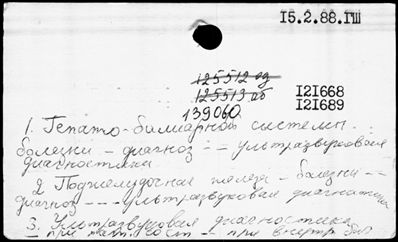 15.2.88.IШ
125512 од
125513 об
139060
I2I668
I2I689
1. Гепато-билиарной системы
болезни - диагноз - - ультразвуковая
диагностика
2 Поджелудочная железа - болезни - -
диагноз - - - ультразвуковая диагностика
3. Ультразвуковая диагностика
- при пат. сост - при внутр бол